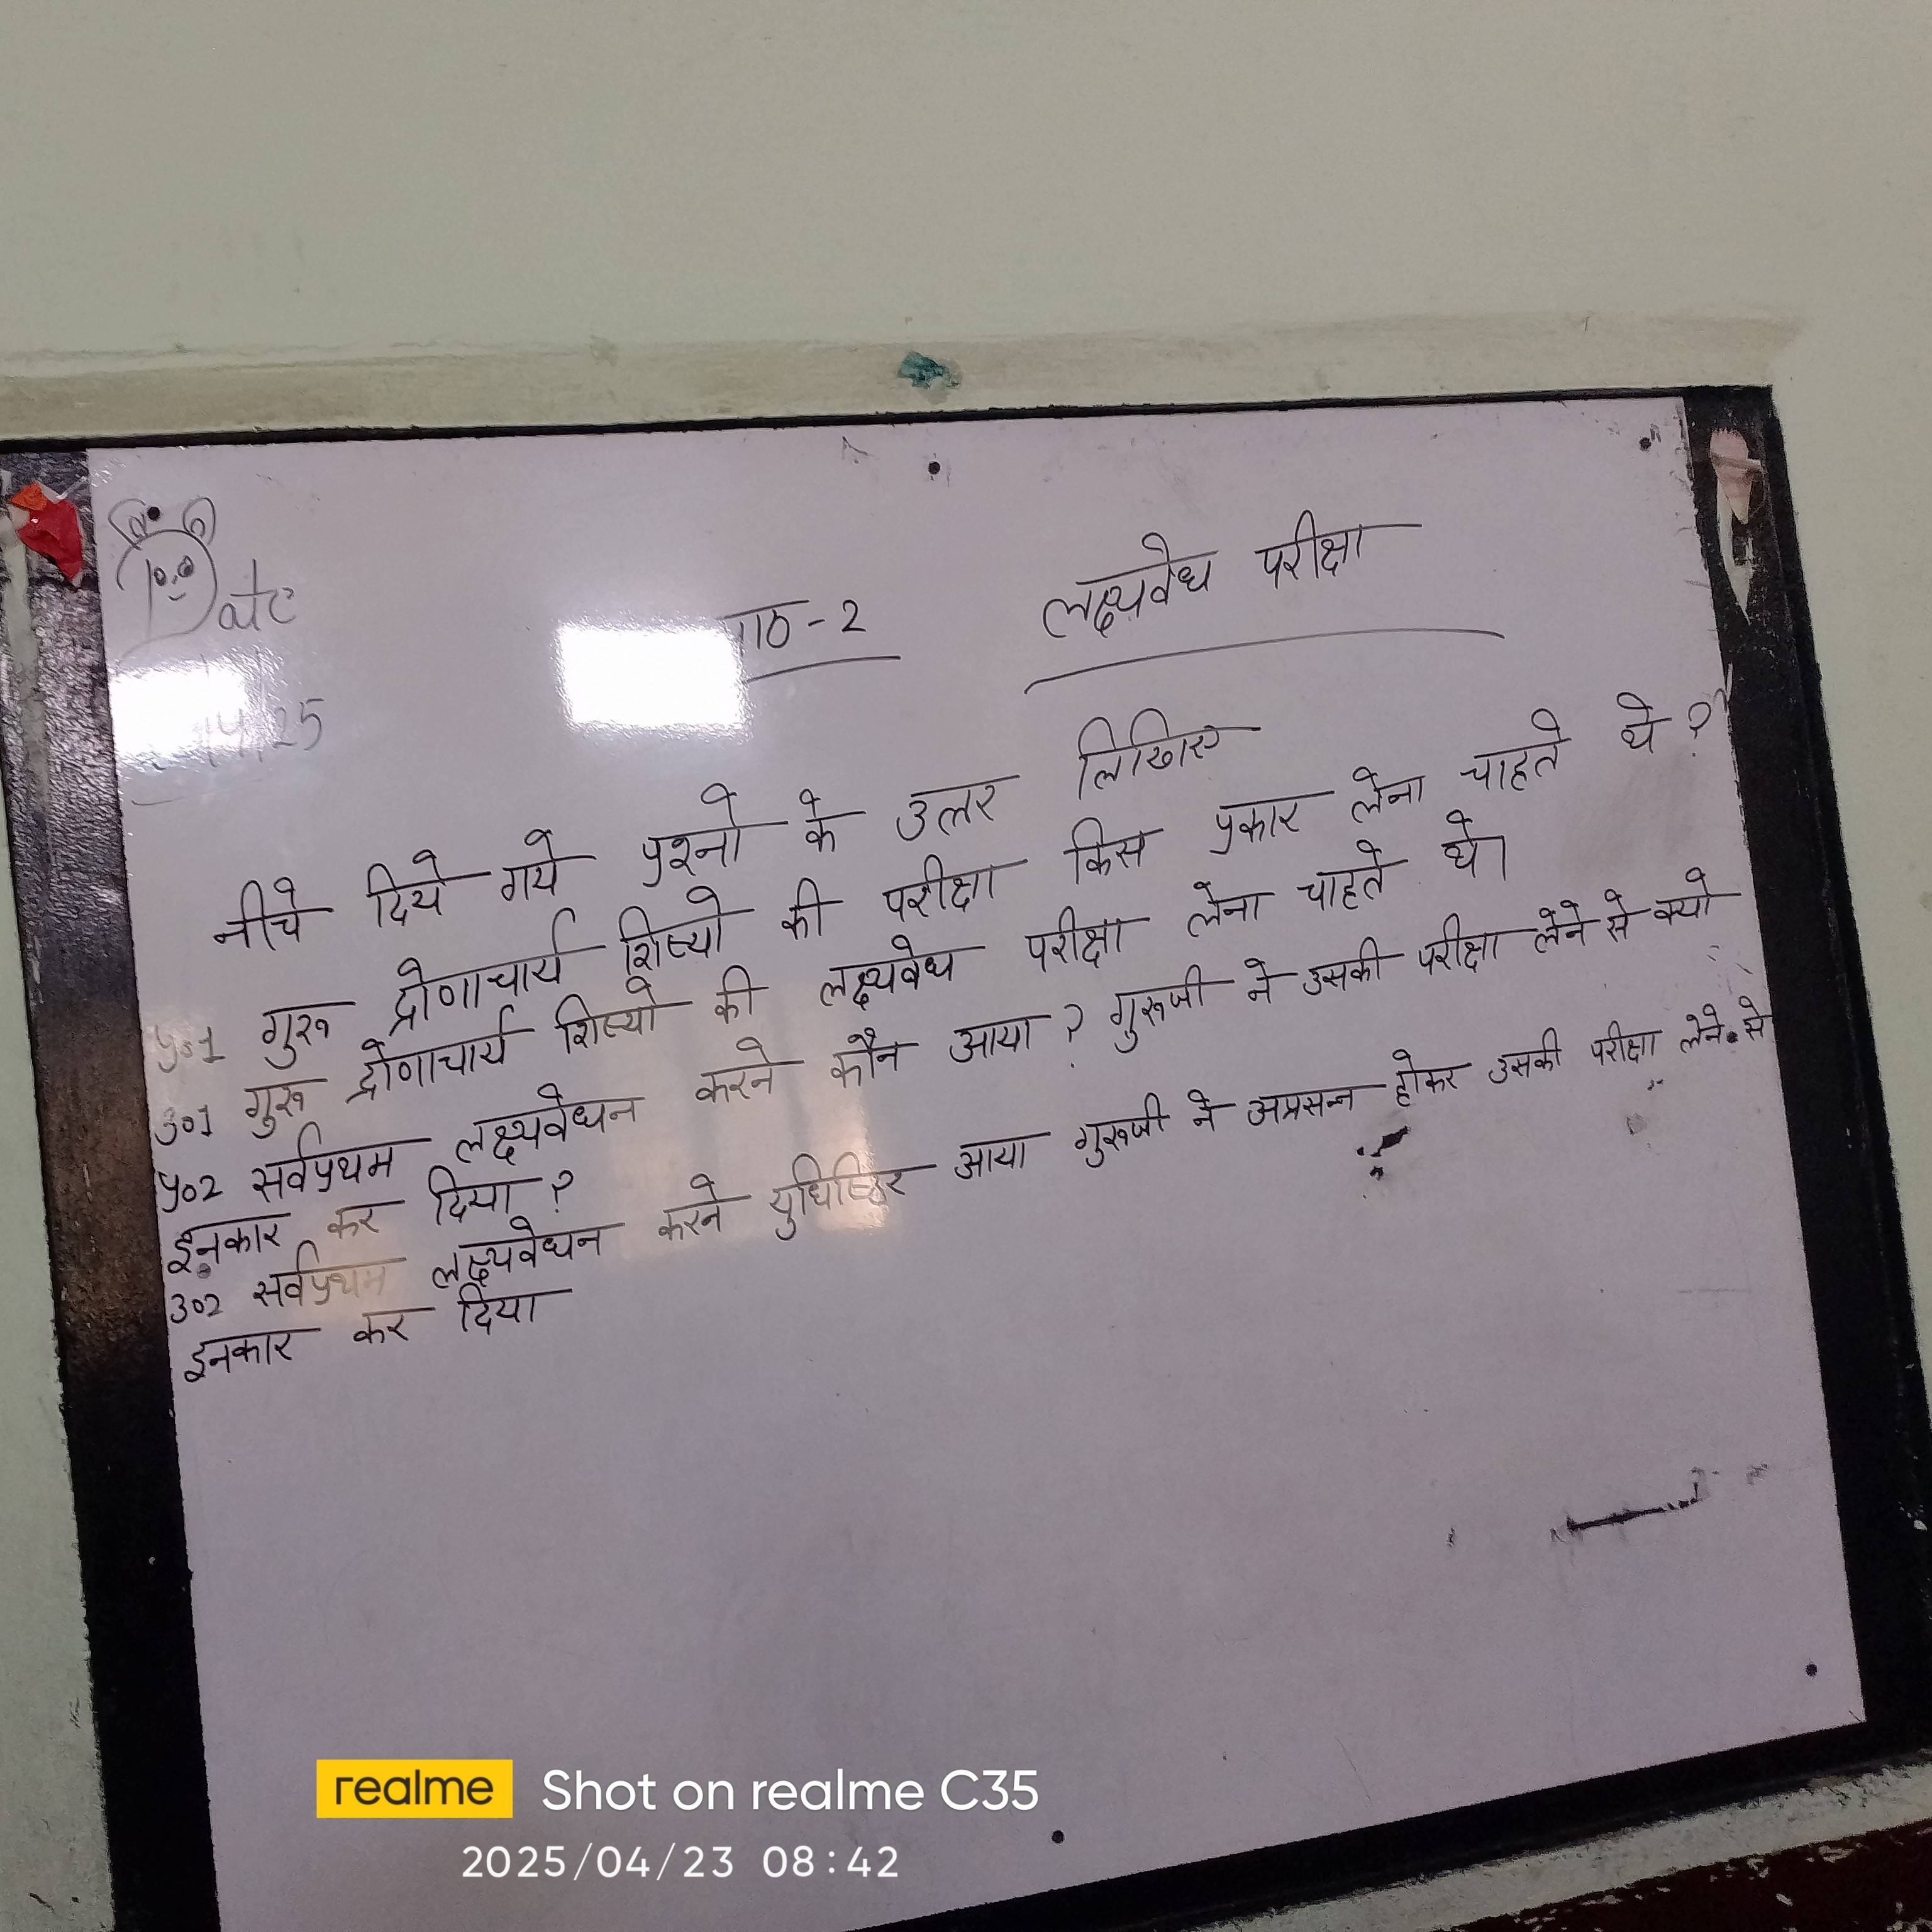 Date
4/25
पाठ-2 लक्ष्यवेध परीक्षा
नीचे दिये गये प्रश्नो के उत्तर लिखिए
प्र०1 गुरू द्रोणाचार्य शिष्यो की परीक्षा किस प्रकार लेना चाहते थे ?
उ०1 गुरू द्रोणाचार्य शिष्यो की लक्ष्यवेध परीक्षा लेना चाहते थे।
प्र०2 सर्वप्रथम लक्ष्यवेधन करने कौन आया ? गुरूजी ने उसकी परीक्षा लेने से क्यो
इनकार कर दिया ?
उ०2 सर्वप्रथम लक्ष्यवेधन करने युधिष्ठिर आया गुरूजी ने अप्रसन्न होकर उसकी परीक्षा लेने से
इनकार कर दिया
realme Shot on realme C35
2025/04/23 08:42